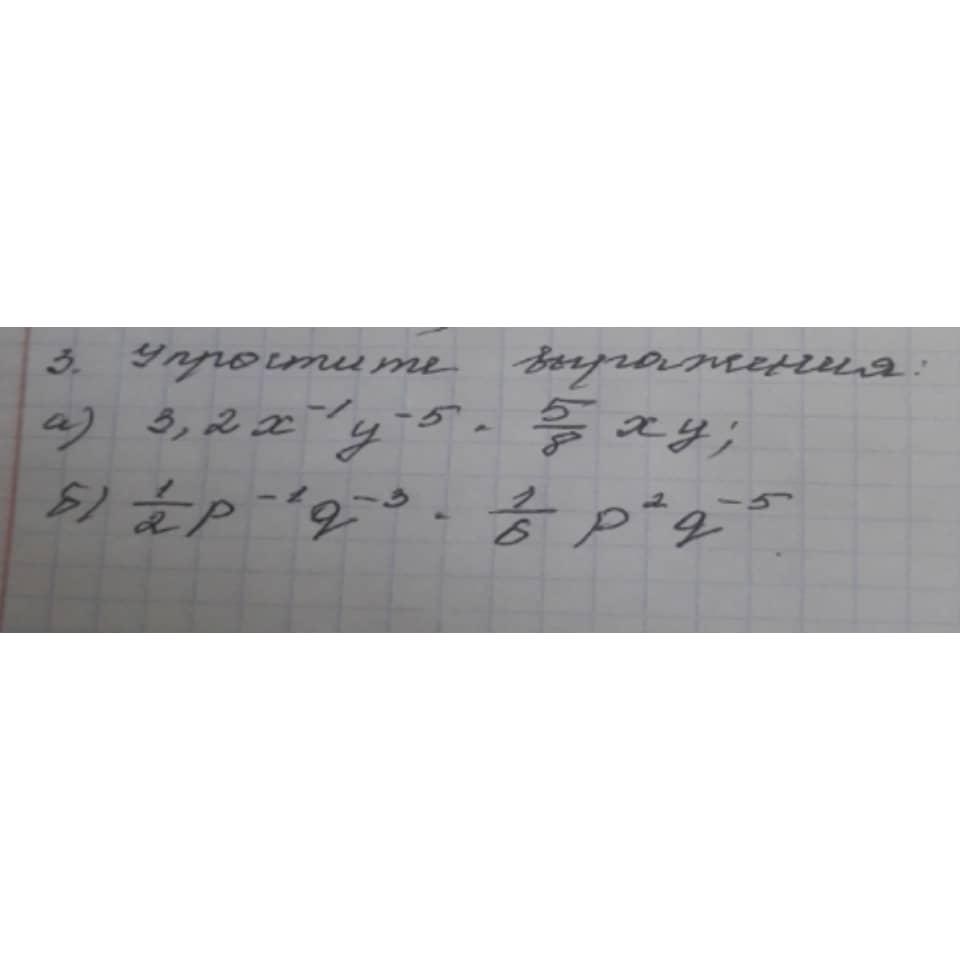 3. Упростите выражения:
а) 3,2x⁻¹y⁻⁵ · 5/8 xy;
б) 1/2 p⁻¹q⁻³ · 1/6 p²q⁻⁵